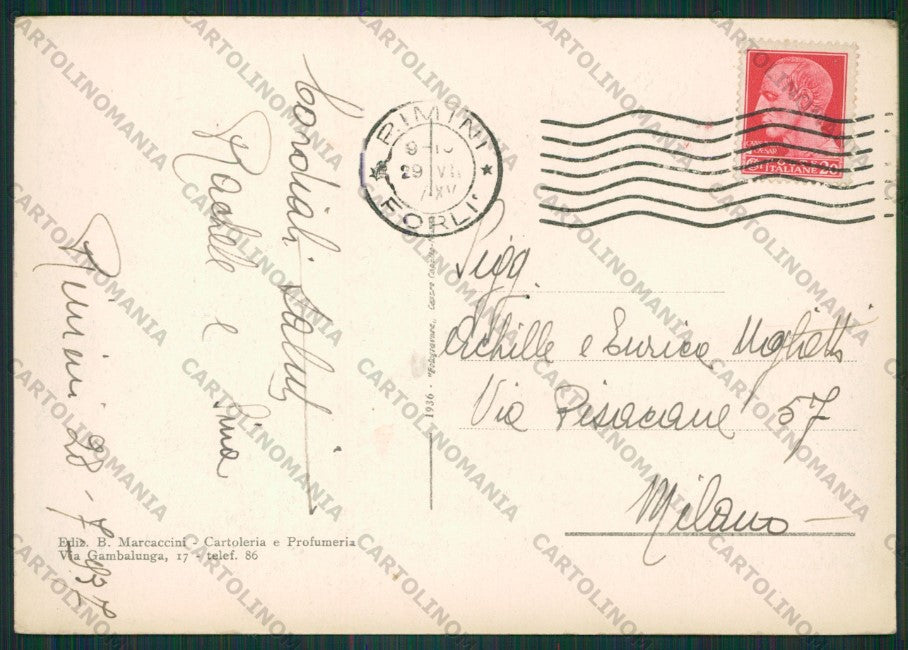 Rimini 28-7-937
Cordiali saluti
Rachele e Lina
RIMINI
9-10
29 VII
XV
FORLI'
POSTE ITALIANE 20
1936 - "Fotogravura" Cesare
Sigg
Achille e Enrico Moglietti
Via Pisacane 57
Milano
Ediz. B. Marcaccini - Cartoleria e Profumeria
Via Gambalunga, 17 - telef. 86
CARTOLINOMANIA